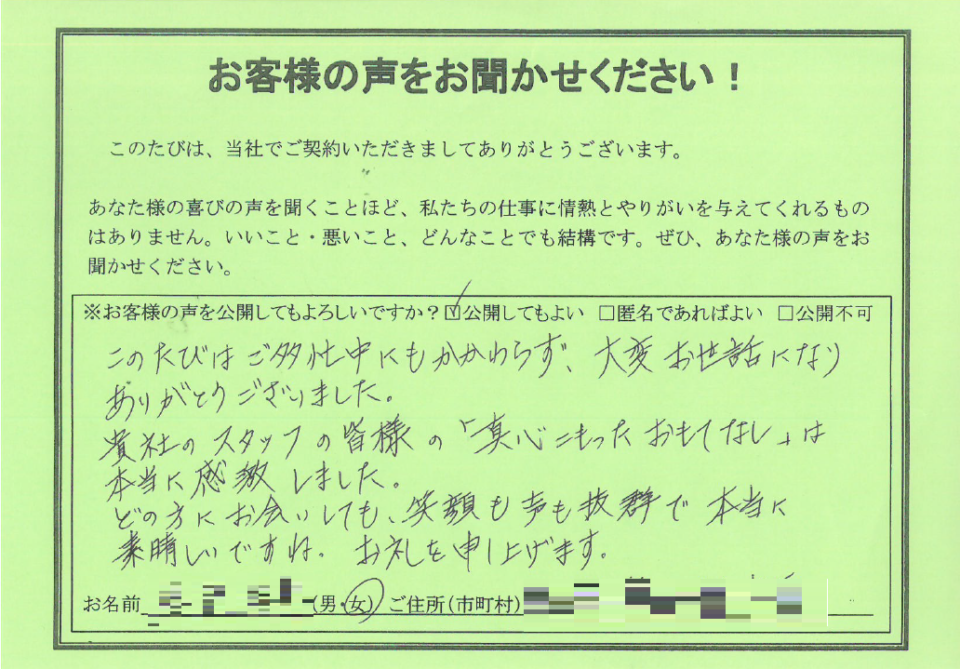 お客様の声をお聞かせください！
このたびは、当社でご契約いただきましてありがとうございます。
あなた様の喜びの声を聞くことほど、私たちの仕事に情熱とやりがいを与えてくれるもの
はありません。いいこと・悪いこと、どんなことでも結構です。ぜひ、あなた様の声をお
聞かせください。
※お客様の声を公開してもよろしいですか？☑公開してもよい □匿名であればよい □公開不可
このたびはご多忙中にもかかわらず、大変お世話になり
ありがとうございました。
貴社のスタッフの皆様の「真心こもったおもてなし」は
本当に感激しました。
どの方にお会いしても、笑顔も声も抜群で本当に
素晴しいですね。お礼を申し上げます。
お名前 (男・女) ご住所(市町村)